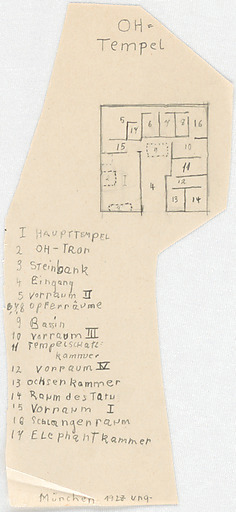 OH=
Tempel
5
17
6
7
8
16
15
9
10
2
I
4
11
12
3
13
14
I HAUPTTEMPEL
2 OH-Tron
3 Steinbank
4 Eingang
5 Vorraum II
6,7,8 opferräume
9 Basin
10 Vorraum III
11 Tempelschatz-
kammer
12 Vorraum IV
13 ochsenkammer
14 Raum des Tatu
15 Vorraum I
16 Schlangenraum
17 ELephantkammer
München 1927